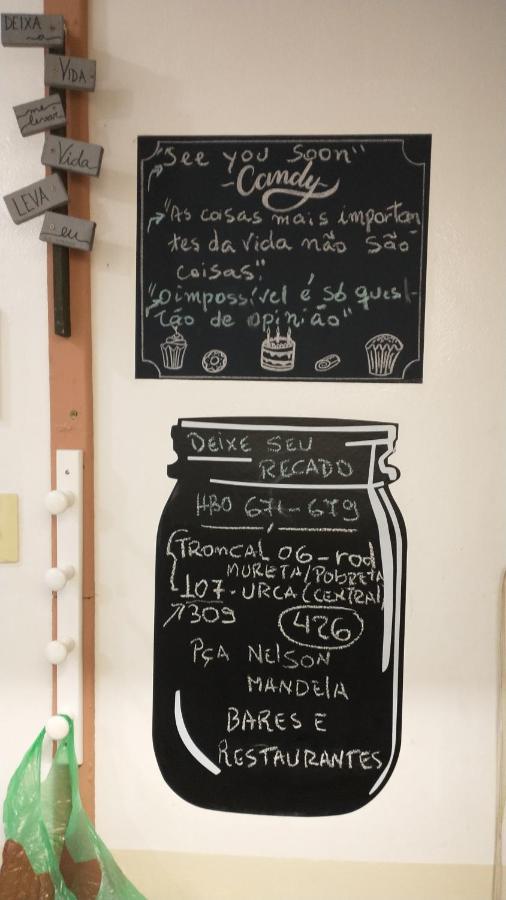 DEIXA
a
VIDA
me
levar
Vida
LEVA
eu
"See you soon"
Candy
"As coisas mais importan
tes da vida não são
coisas"
"O impossível é só ques-
tão de opinião"
DEIXE SEU
RECADO
HBO 671-679
TRONCAL 06-rod
MURETA/POBRETA
107-URCA (CENTRAL)
309
426
PÇA NELSON
MANDELA
BARES E
RESTAURANTES